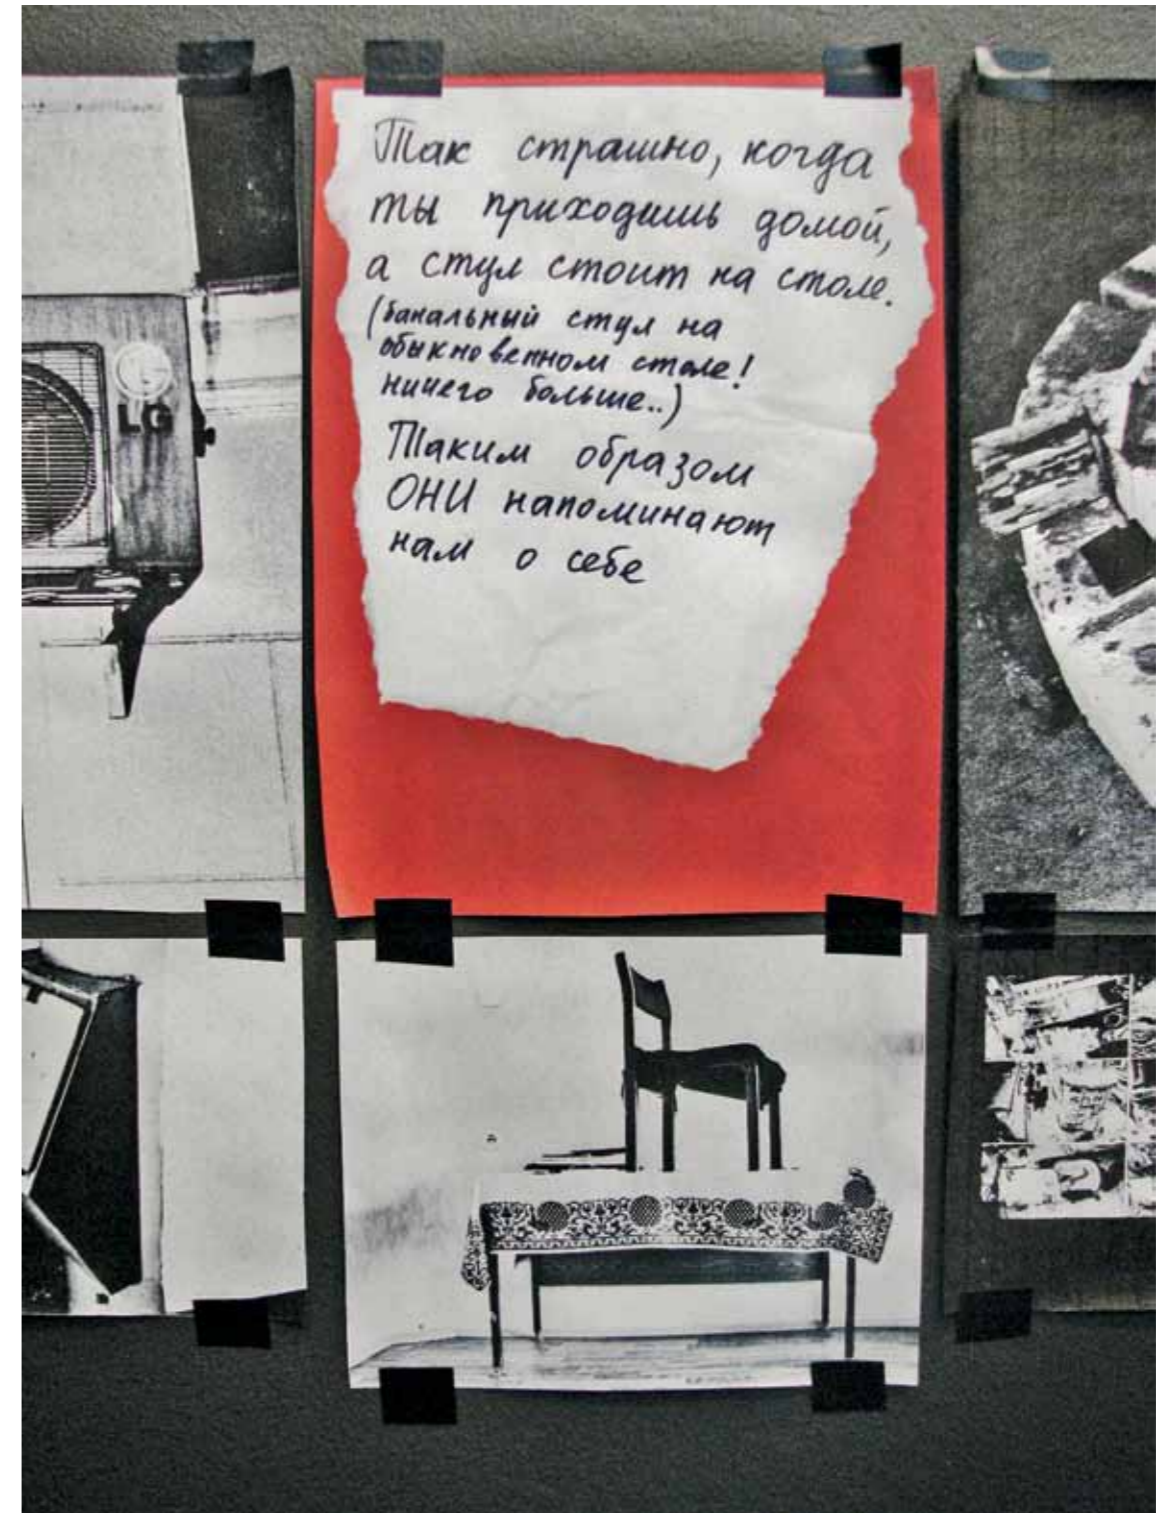 Так страшно, когда
ты приходишь домой,
а стул стоит на столе.
(банальный стул на
обыкновенном столе!
ничего больше..)
Таким образом
ОНИ напоминают
нам о себе
LG